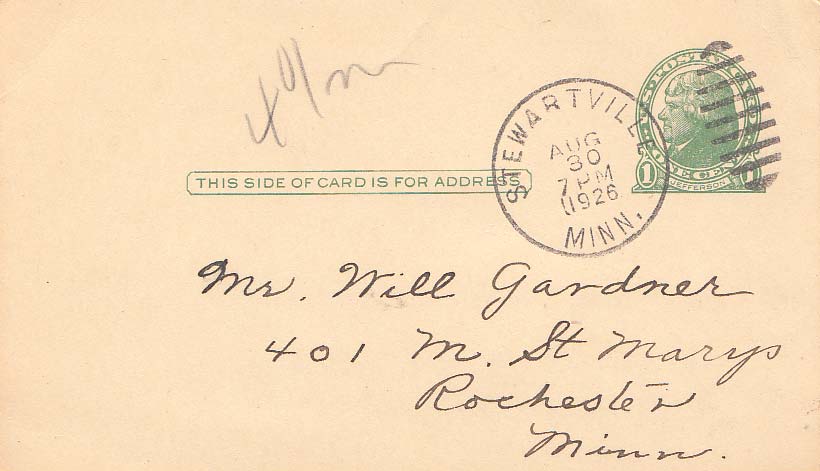 U.S. POSTAL CARD
STEWARTVILLE
AUG
30
7 PM
1926
MINN.
1 JEFFERSON 1
THIS SIDE OF CARD IS FOR ADDRESS
Mr. Will Gardner
401 M. St Marys
Rochester
Minn.